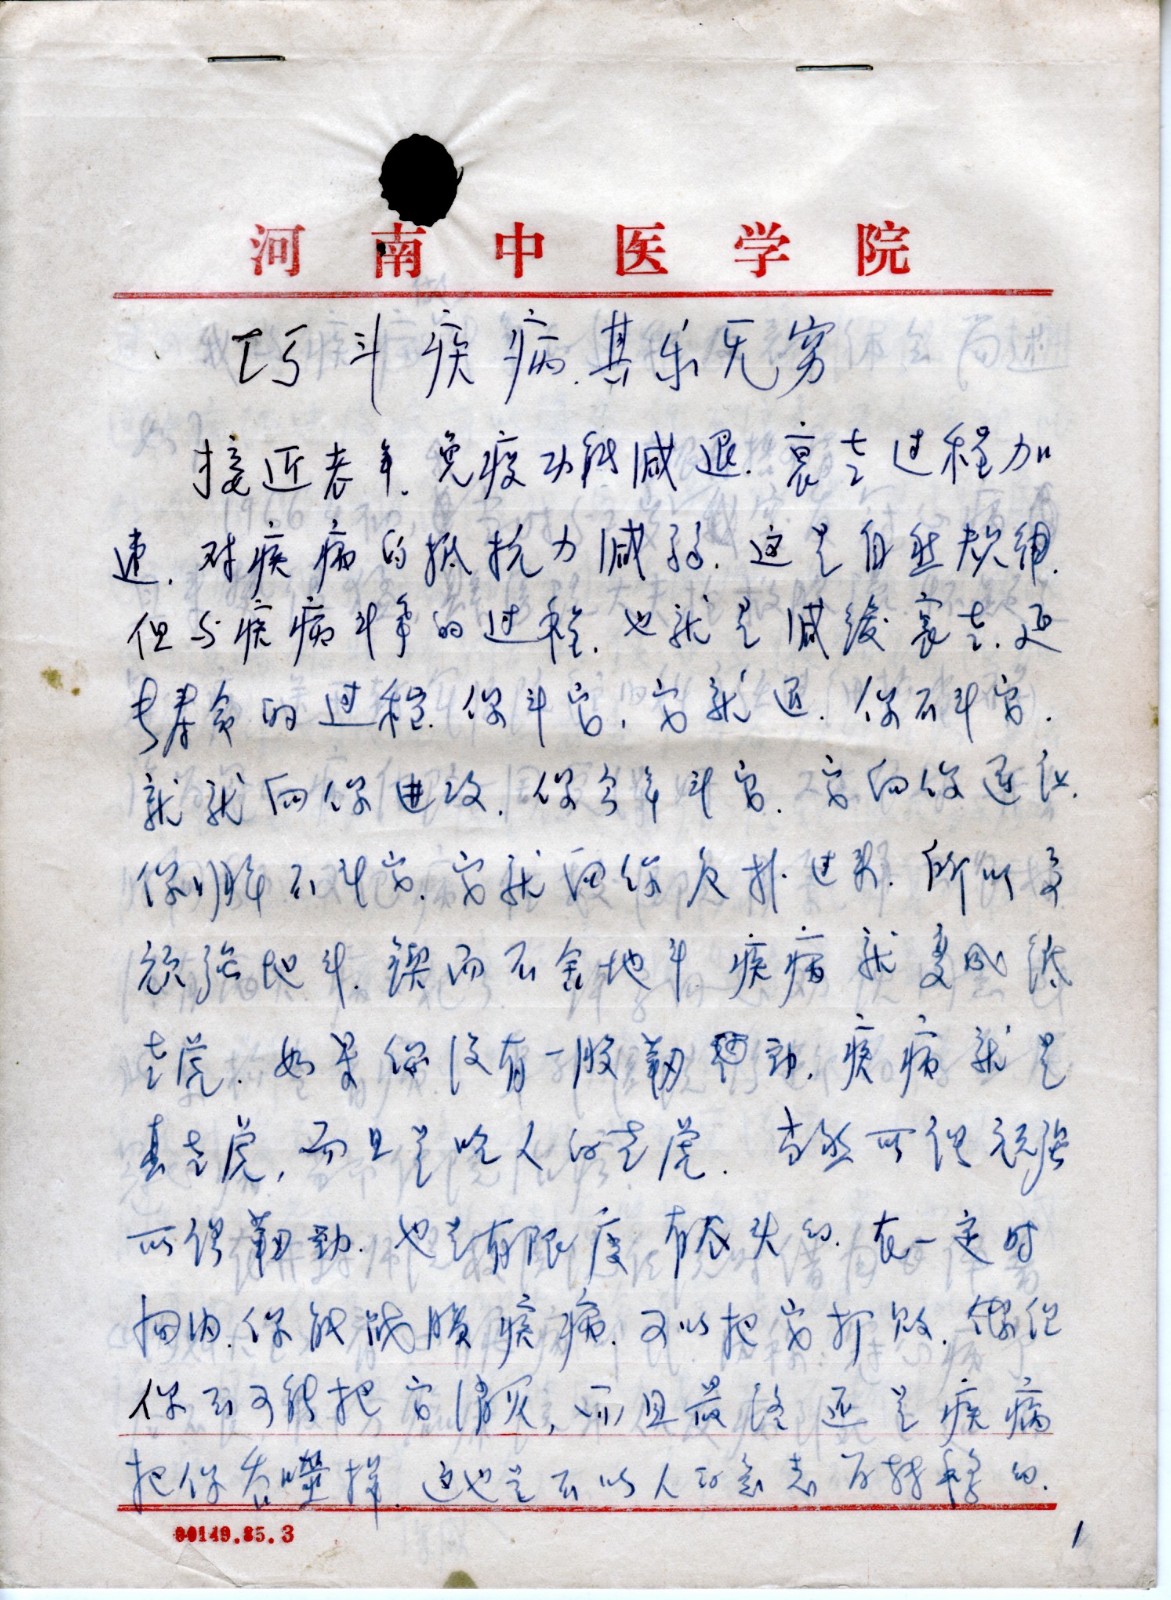 河南中医学院
巧斗疾病.其乐无穷
接近老年.免疫功能减退.衰老过程加
速.对疾病的抵抗力减弱.这是自然规律.
但与疾病斗争的过程.也就是减缓衰老.延
长寿命的过程.你斗它,它就退.你不斗它.
就就向你进攻.你今年斗它.它向你退让.
你明年不斗它.它就向你反扑过来.所以要
顽强地斗.锲而不舍地斗.疾病就变成纸
老虎.如果你没有一股韧劲.疾病就是
真老虎,而且是吃人的老虎.当然所谓顽强
所谓韧劲.也是有限度有尽头的.在一定时
期内.你能战胜疾病.可以把它打败.但
你不可能把它消灭,而且最终还是疾病
把你吞噬掉.这也是不以人的意志为转移的.
00149.85.3
1